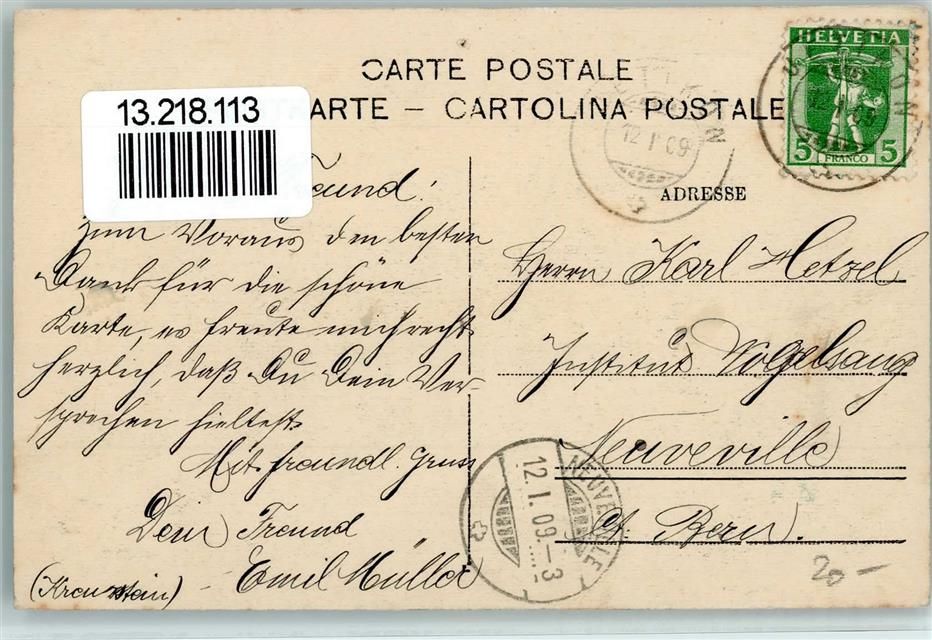 CARTE POSTALE
ARTE – CARTOLINA POSTALE
13.218.113
HELVETIA
5 FRANCO 5
12 I 09
ADRESSE
Freund!
Zum Voraus den besten
Dank für die schöne
Karte, es freute mich recht
herzlich, daß Du Dein Ver-
sprechen hieltest.
Mit freundl. Gruss
Dein Freund
Emil Müller
Herrn Karl Hetzel
Institut Vogelsang
Neuveville
Ct. Bern.
NEUVEVILLE
12. I. 09. – 3
20 –